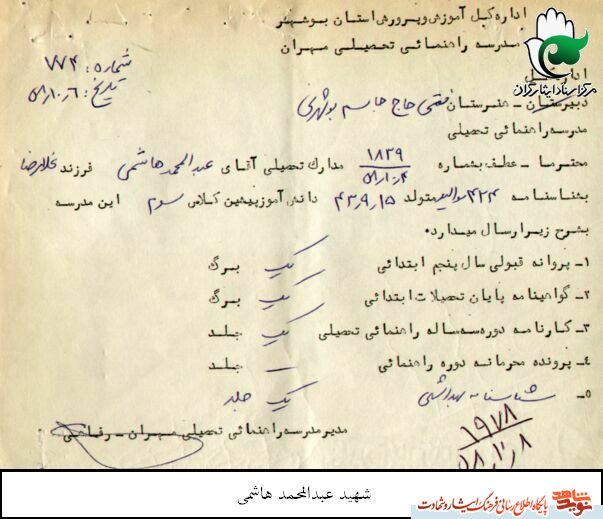 اداره کل آموزش و پرورش استان بوشهر
مدرسه راهنمائی تحصیلی مهران
شماره: ۷۷۴
تاریخ: ۵۸٫۱۰٫۶
مرکز اسناد ایثارگران
اداره کل
دبیرستان - هنرستان فنی حاج جاسم بوشهری
مدرسه راهنمائی تحصیلی
محترما - عطف بشماره ۱۸۳۹ ۵۸٫۱۰٫۴ مدارک تحصیلی آقای عبدالمحمد هاشمی فرزند غلامرضا
بشناسنامه ۴۲۴ متولد ۴۳٫۹٫۱۵ دانش آموز پیشین کلاس سوم این مدرسه
بشرح زیر ارسال میدارد.
۱- پروانه قبولی سال پنجم ابتدائی یک برگ
۲- گواهینامه پایان تحصیلات ابتدائی یک برگ
۳- کارنامه دوره سه ساله راهنمائی تحصیلی یک جلد
۴- پرونده محرمانه دوره راهنمائی — جلد
۵- شناسنامه بهداشتی یک جلد
مدیر مدرسه راهنمائی تحصیلی مهران -
۱۹۷۸
۵۸٫۱۰٫۸
شهید عبدالمحمد هاشمی
نوید شاهد
پایگاه اطلاع رسانی فرهنگ ایثار و شهادت